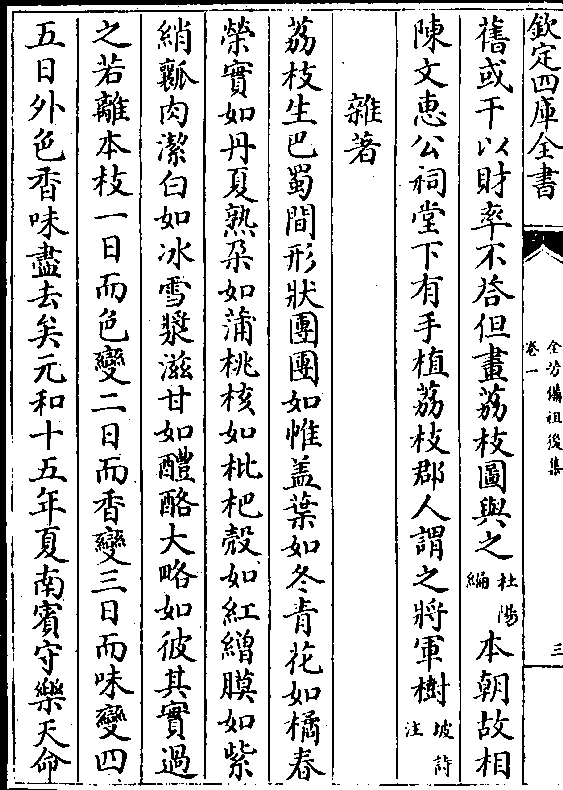 欽定四庫全書
全芳備祖後集
卷一
三
舊或干以財率不答但畫荔枝圖與之杜陽編本朝故相
陳文惠公祠堂下有手植荔枝郡人謂之將軍樹坡詩注
雜著
荔枝生巴蜀間形狀團團如帷盖葉如冬青花如橘春
榮實如丹夏熟朶如蒲桃核如枇杷殼如紅繒膜如紫
綃瓤肉潔白如冰雪漿滋甘如醴酪大略如彼其實過
之若離本枝一日而色變二日而香變三日而味變四
五日外色香味盡去矣元和十五年夏南賓守樂天命